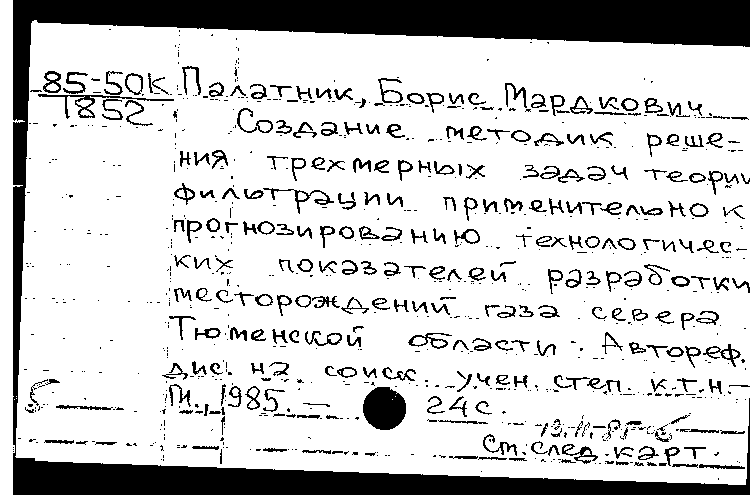 85-50К Палатник, Борис Мардкович.
1852
Создание методик реше-
ния трехмерных задач теории
фильтрации применительно к
прогнозированию технологичес-
ких показателей разработки
месторождений газа севера
Тюменской области. Автореф.
дис. на соиск. учен. степ. к.т.н.-
М., 1985. — 24с.
Ст. след. карт.